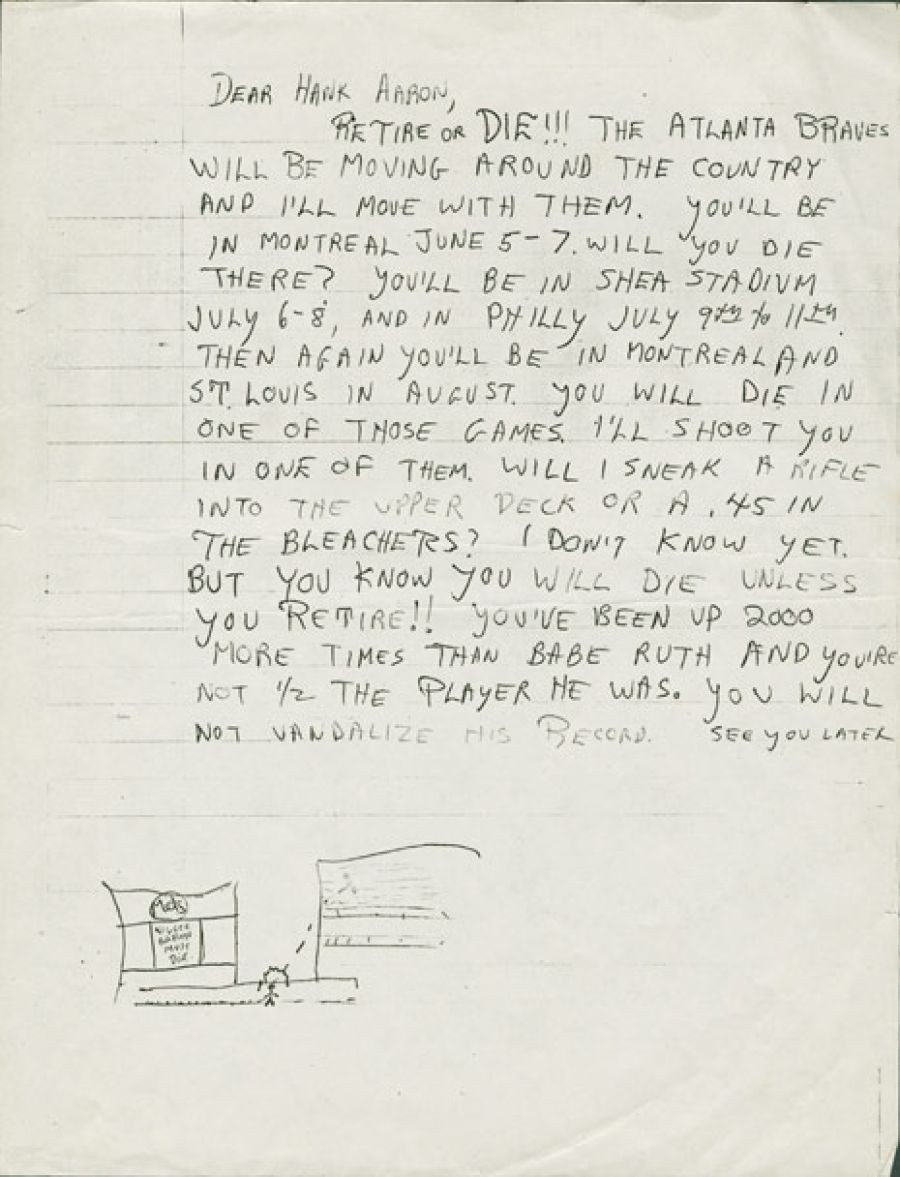 DEAR HANK AARON,
RETIRE OR DIE!!! THE ATLANTA BRAVES
WILL BE MOVING AROUND THE COUNTRY
AND I'LL MOVE WITH THEM. YOU'LL BE
IN MONTREAL JUNE 5-7. WILL YOU DIE
THERE? YOU'LL BE IN SHEA STADIUM
JULY 6-8, AND IN PHILLY JULY 9TH to 11TH.
THEN AGAIN YOU'LL BE IN MONTREAL AND
ST. LOUIS IN AUGUST. YOU WILL DIE IN
ONE OF THOSE GAMES. I'LL SHOOT YOU
IN ONE OF THEM. WILL I SNEAK A RIFLE
INTO THE UPPER DECK OR A .45 IN
THE BLEACHERS? I DON'T KNOW YET.
BUT YOU KNOW YOU WILL DIE UNLESS
YOU RETIRE!! YOU'VE BEEN UP 2000
MORE TIMES THAN BABE RUTH AND YOU'RE
NOT 1/2 THE PLAYER HE WAS. YOU WILL
NOT VANDALIZE HIS RECORD. SEE YOU LATER
Mets
MUST
DIE